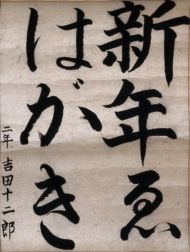 新年ゑ
はがき
二年 吉田十二郎